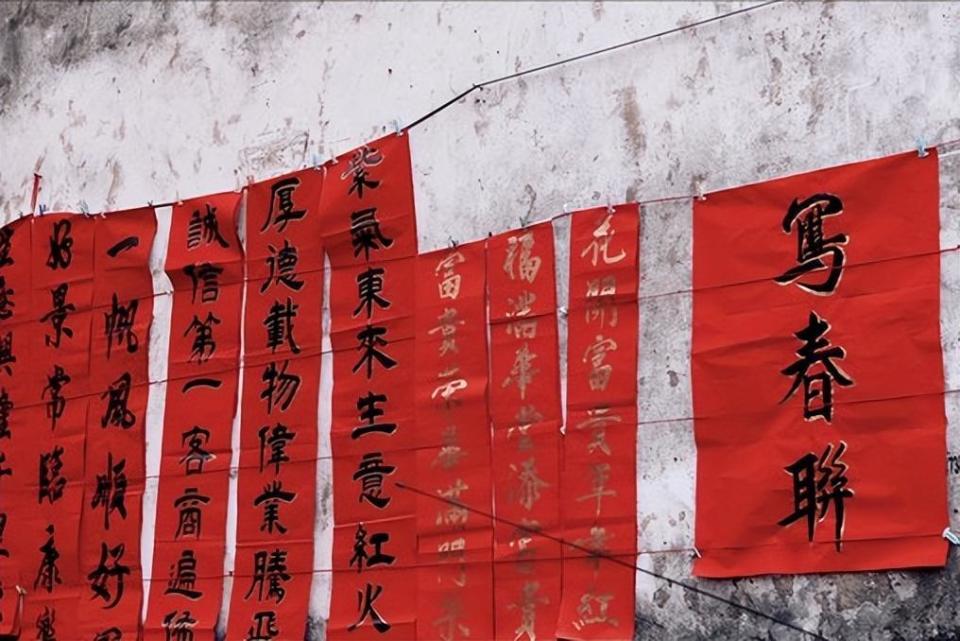 寫春聯
花開富貴年年紅
福滿華堂添富貴
富貴榮華滿門
紫氣東來生意紅火
厚德載物偉業騰飛
誠信第一客商遍
一帆風順好
好景常臨康